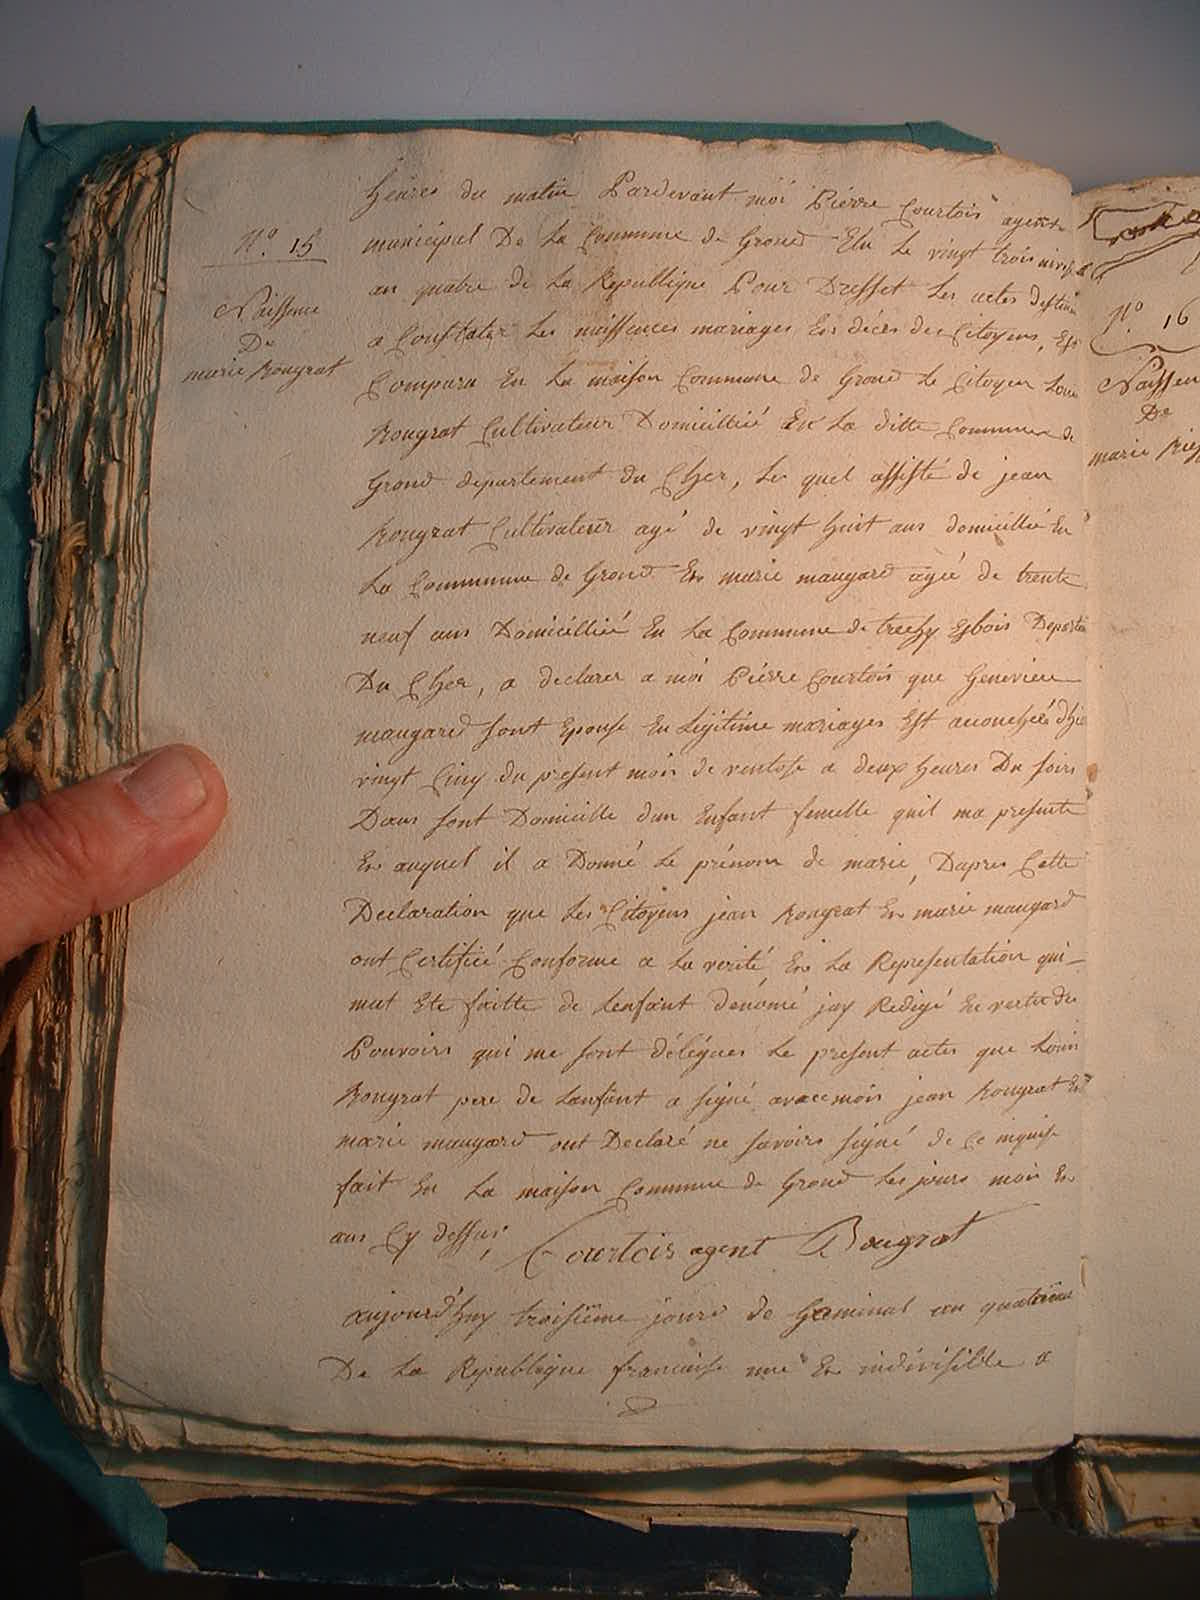 heures du matin Pardevant moi Pierre Courtois agent
N.° 15
municipal De La Commune de Groud Elu Le vingt trois nivose
an quatre de La Republique Pour Dresser Les actes destinés
Naissence
De
marie Rougrat
a Constater Les naissences mariages Et décés des Citoyens, Est
Comparu En La maison Commune de Groud Le Citoyen Louis
Rougrat Cultivateur Domicillié En La ditte Commune de
Groud departement du Cher, Le quel assisté de jean
Rougrat Cultivateur agé de vingt huit ans domicillié En
La Commune de Groud Et marie maugard agée de trente
neuf ans Domicillié En La Commune de
Du Cher, a declarer a moi Pierre Courtois que Genevieve
maugard sont Epouse En Légitime mariages Est acouchée dhier
vingt Cinq du present mois de ventose a deux heures Du soirs
Dans sont Domicille dun Enfant femelle quil ma presenté
Et auquel il a Donné Le prénom de marie, Dapres Cette
Declaration que Les Citoyens jean Rougrat Et marie maugard
ont Certifié Conforme a La verité, Et La Representation qui
mat Eté faitte de Lenfant dénomé jay Redigé En vertu des
Pouvoirs qui me sont délégues Le present actes que Louis
Rougrat pere de Lenfant a signé avec mois jean Rougrat Et
marie maugard ont Declaré ne savoirs signé de Ce
fait En La maison Commune de Groud Les jours mois Et
ans Cy dessus, Courtois agent Bougrat
aujourd'huy troisiéme jours de Germinal an quatriéme
De La Republique francaise une Et indivisible a
N° 16
Naissen
De
marie